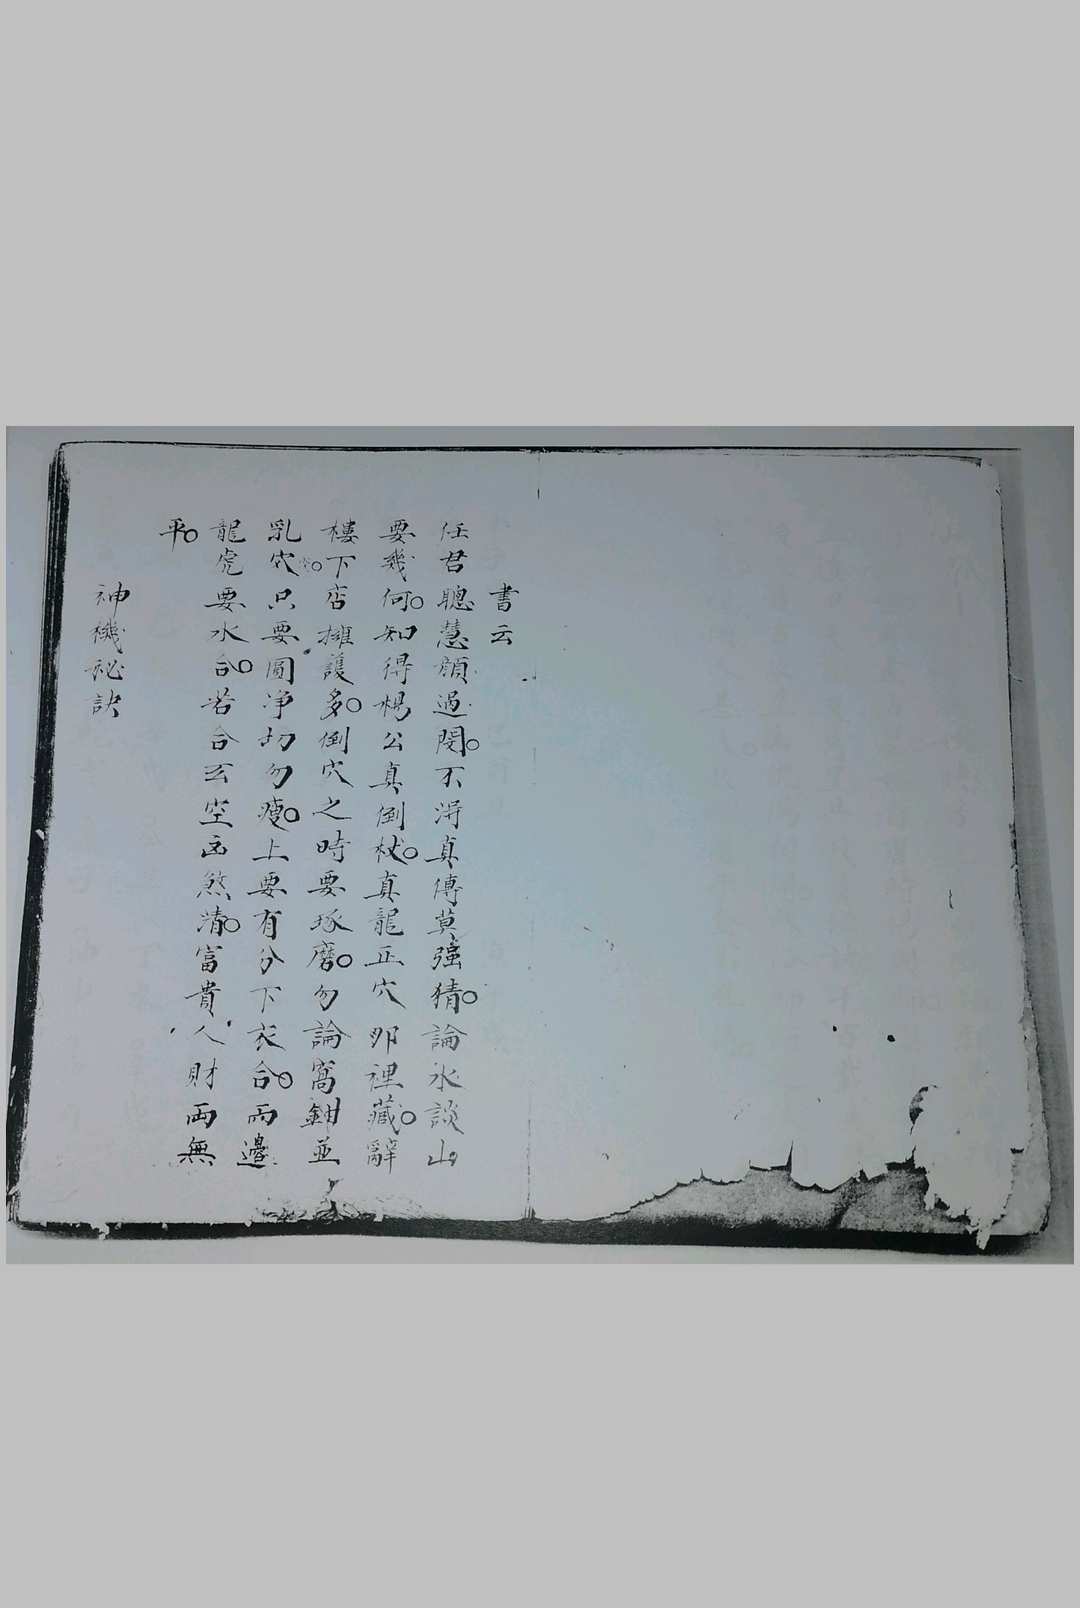 書云
任君聰慧顏過閔○不淂真傳莫強猜○論水談山
要幾何○知得楊公真倒杖○真龍正穴卯裡藏○辭
樓下店擁護多○倒穴之時要琢磨○勿論窩鉗並
乳穴○只要圓凈切勿瘦○上要有分下衣合○両邊
龍虎要水合○若合玄空出煞清○富貴人財両無
平○
神機秘訣